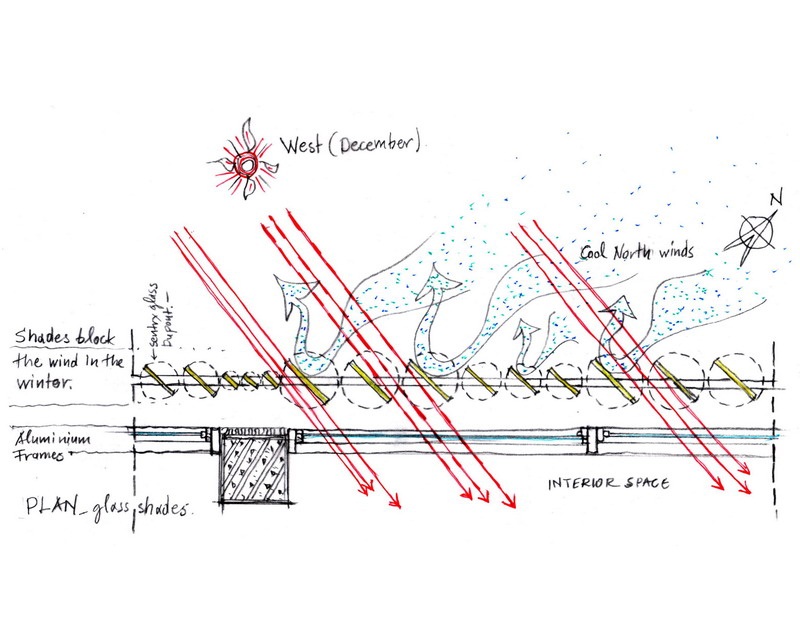 West (December)
N
Cool North winds
sentry glass
Dupont
Shades block
the wind in the
winter.
Aluminium
Frames
INTERIOR SPACE
PLAN_glass shades.